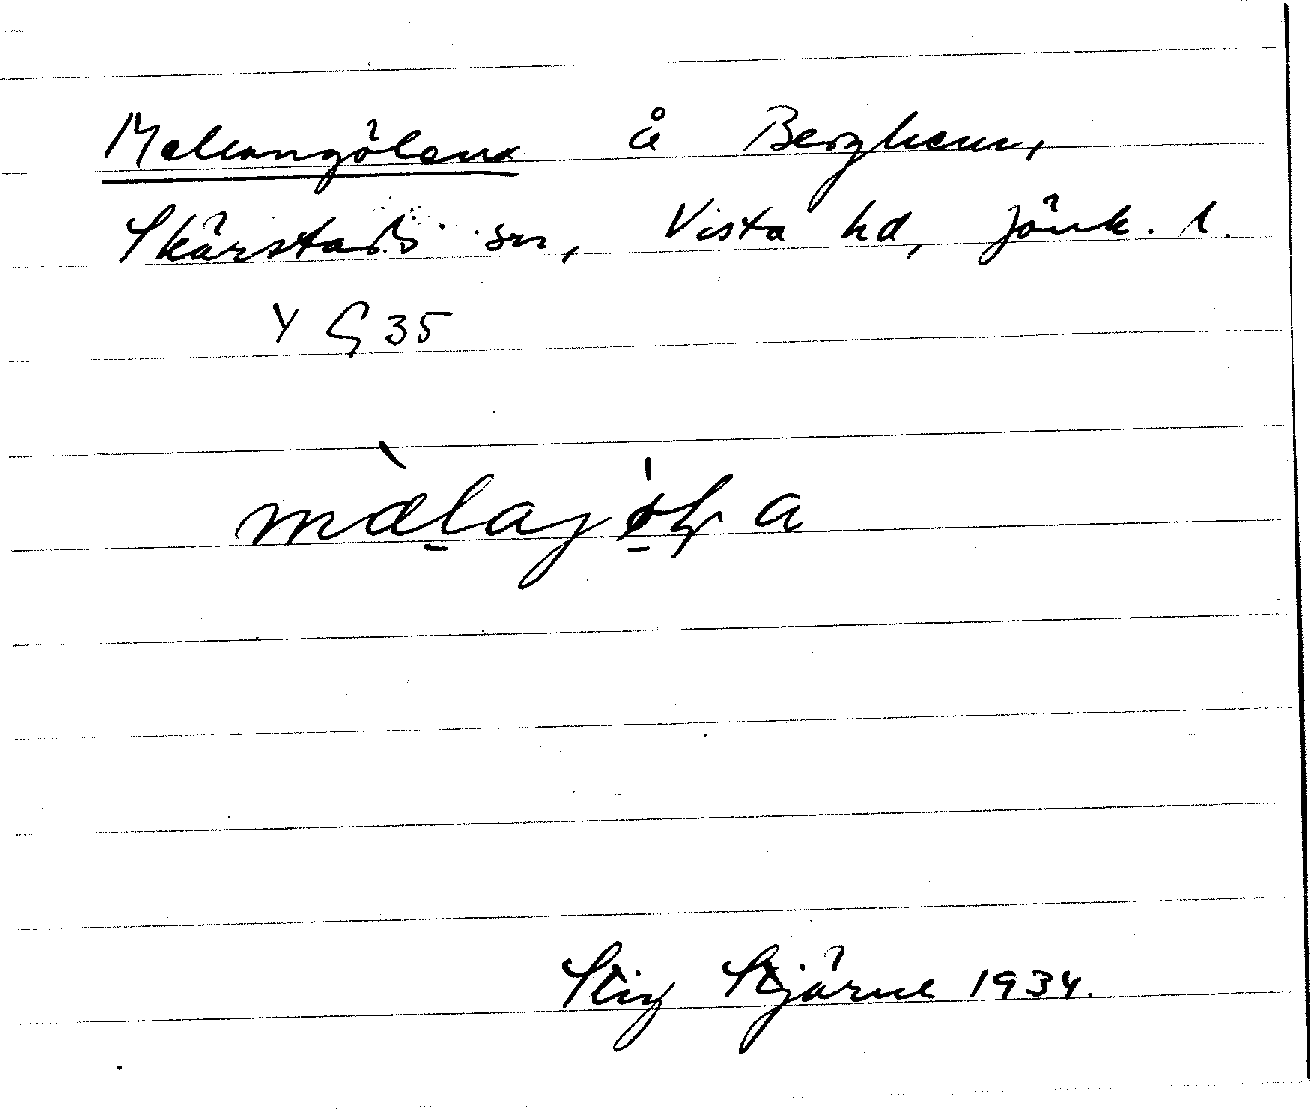 Mellangölena å Berghem,
Skärstads sn, Vista hd, Jönk. l.
Y G 35
Stig Stjärne 1934.